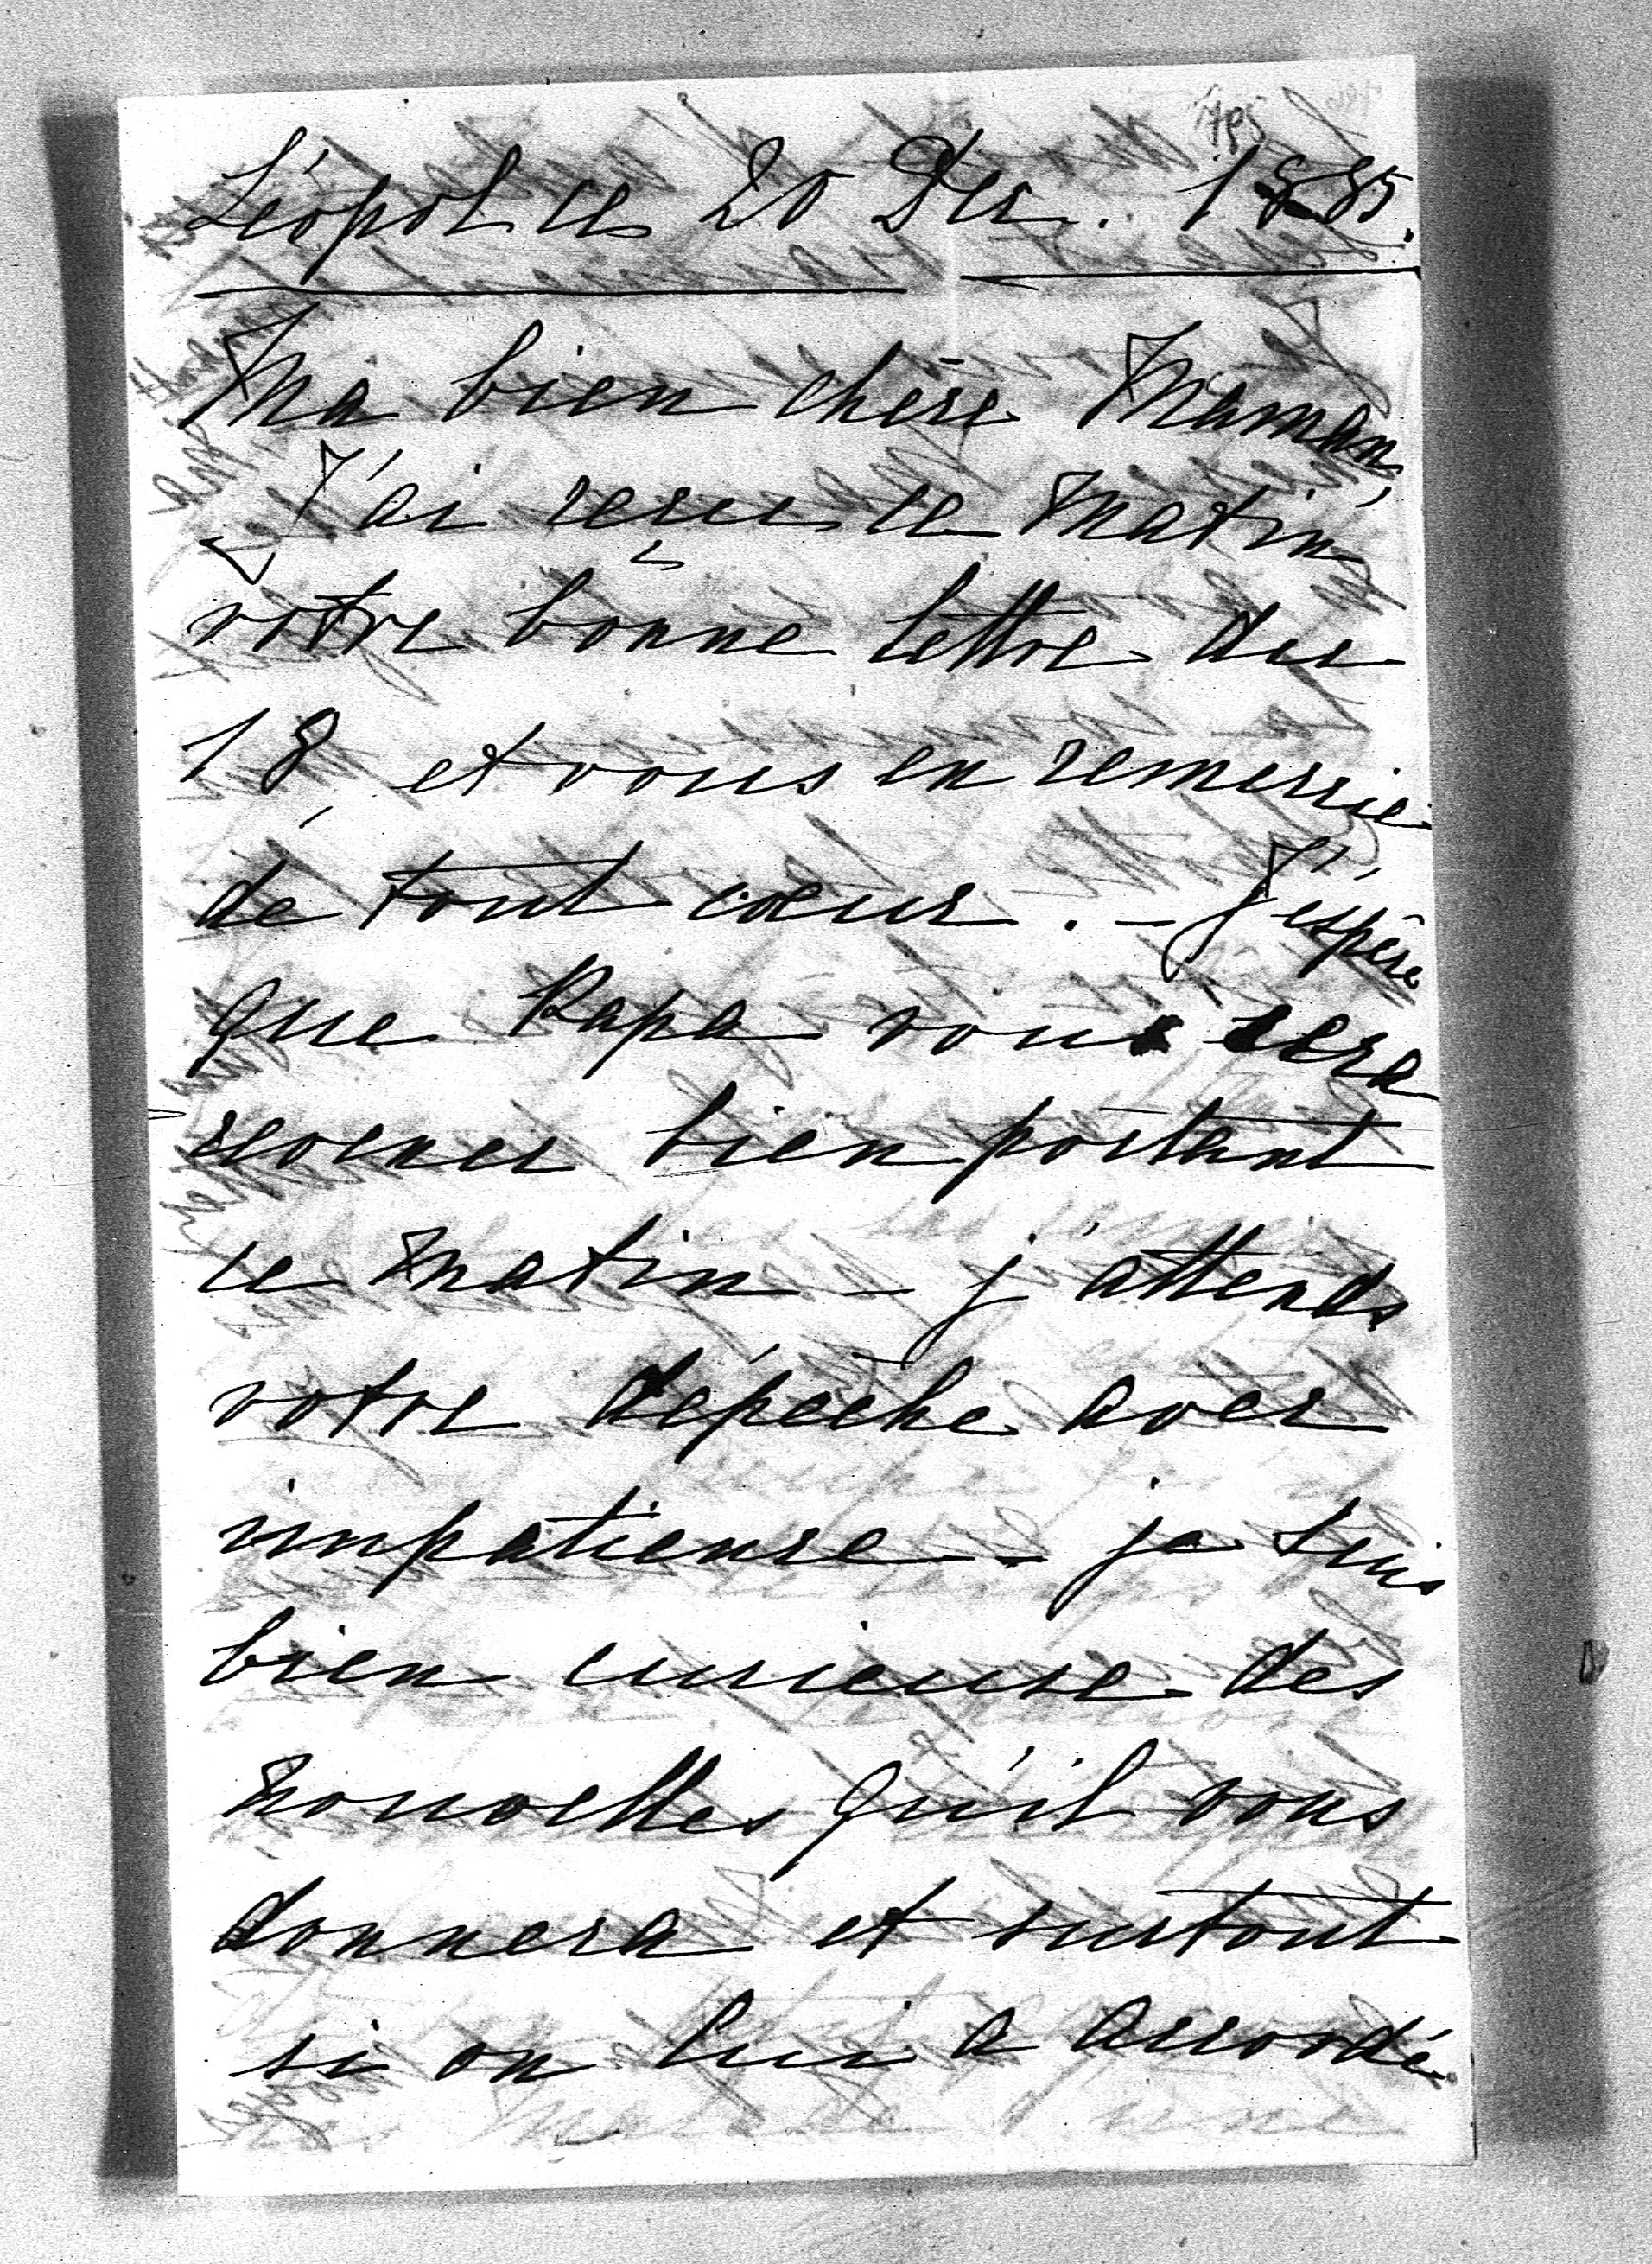 Léopol ce 20 Dec. 1885.
Ma bien chère Maman,
J'ai reçu ce matin
votre bonne lettre du
18, et vous en remercie
de tout cœur. – J'espère
que Papa vous sera
revenu bien portant
ce matin – j'attends
votre dépêche avec
impatience – je suis
bien curieuse des
nouvelles qu'il vous
donnera et surtout
si on lui a accordé